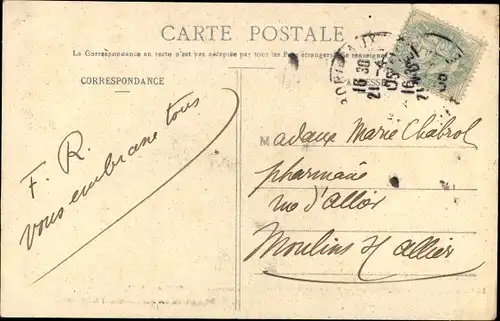 CARTE POSTALE
La Correspondance au recto n'est pas acceptée par tous les Pays étrangers
CORRESPONDANCE
16 30
21 -4
16 30
F. R.
vous embrasse tous
Madame Marie Chabrol
pharmacie
rue d'allier
Moulins s/ allier